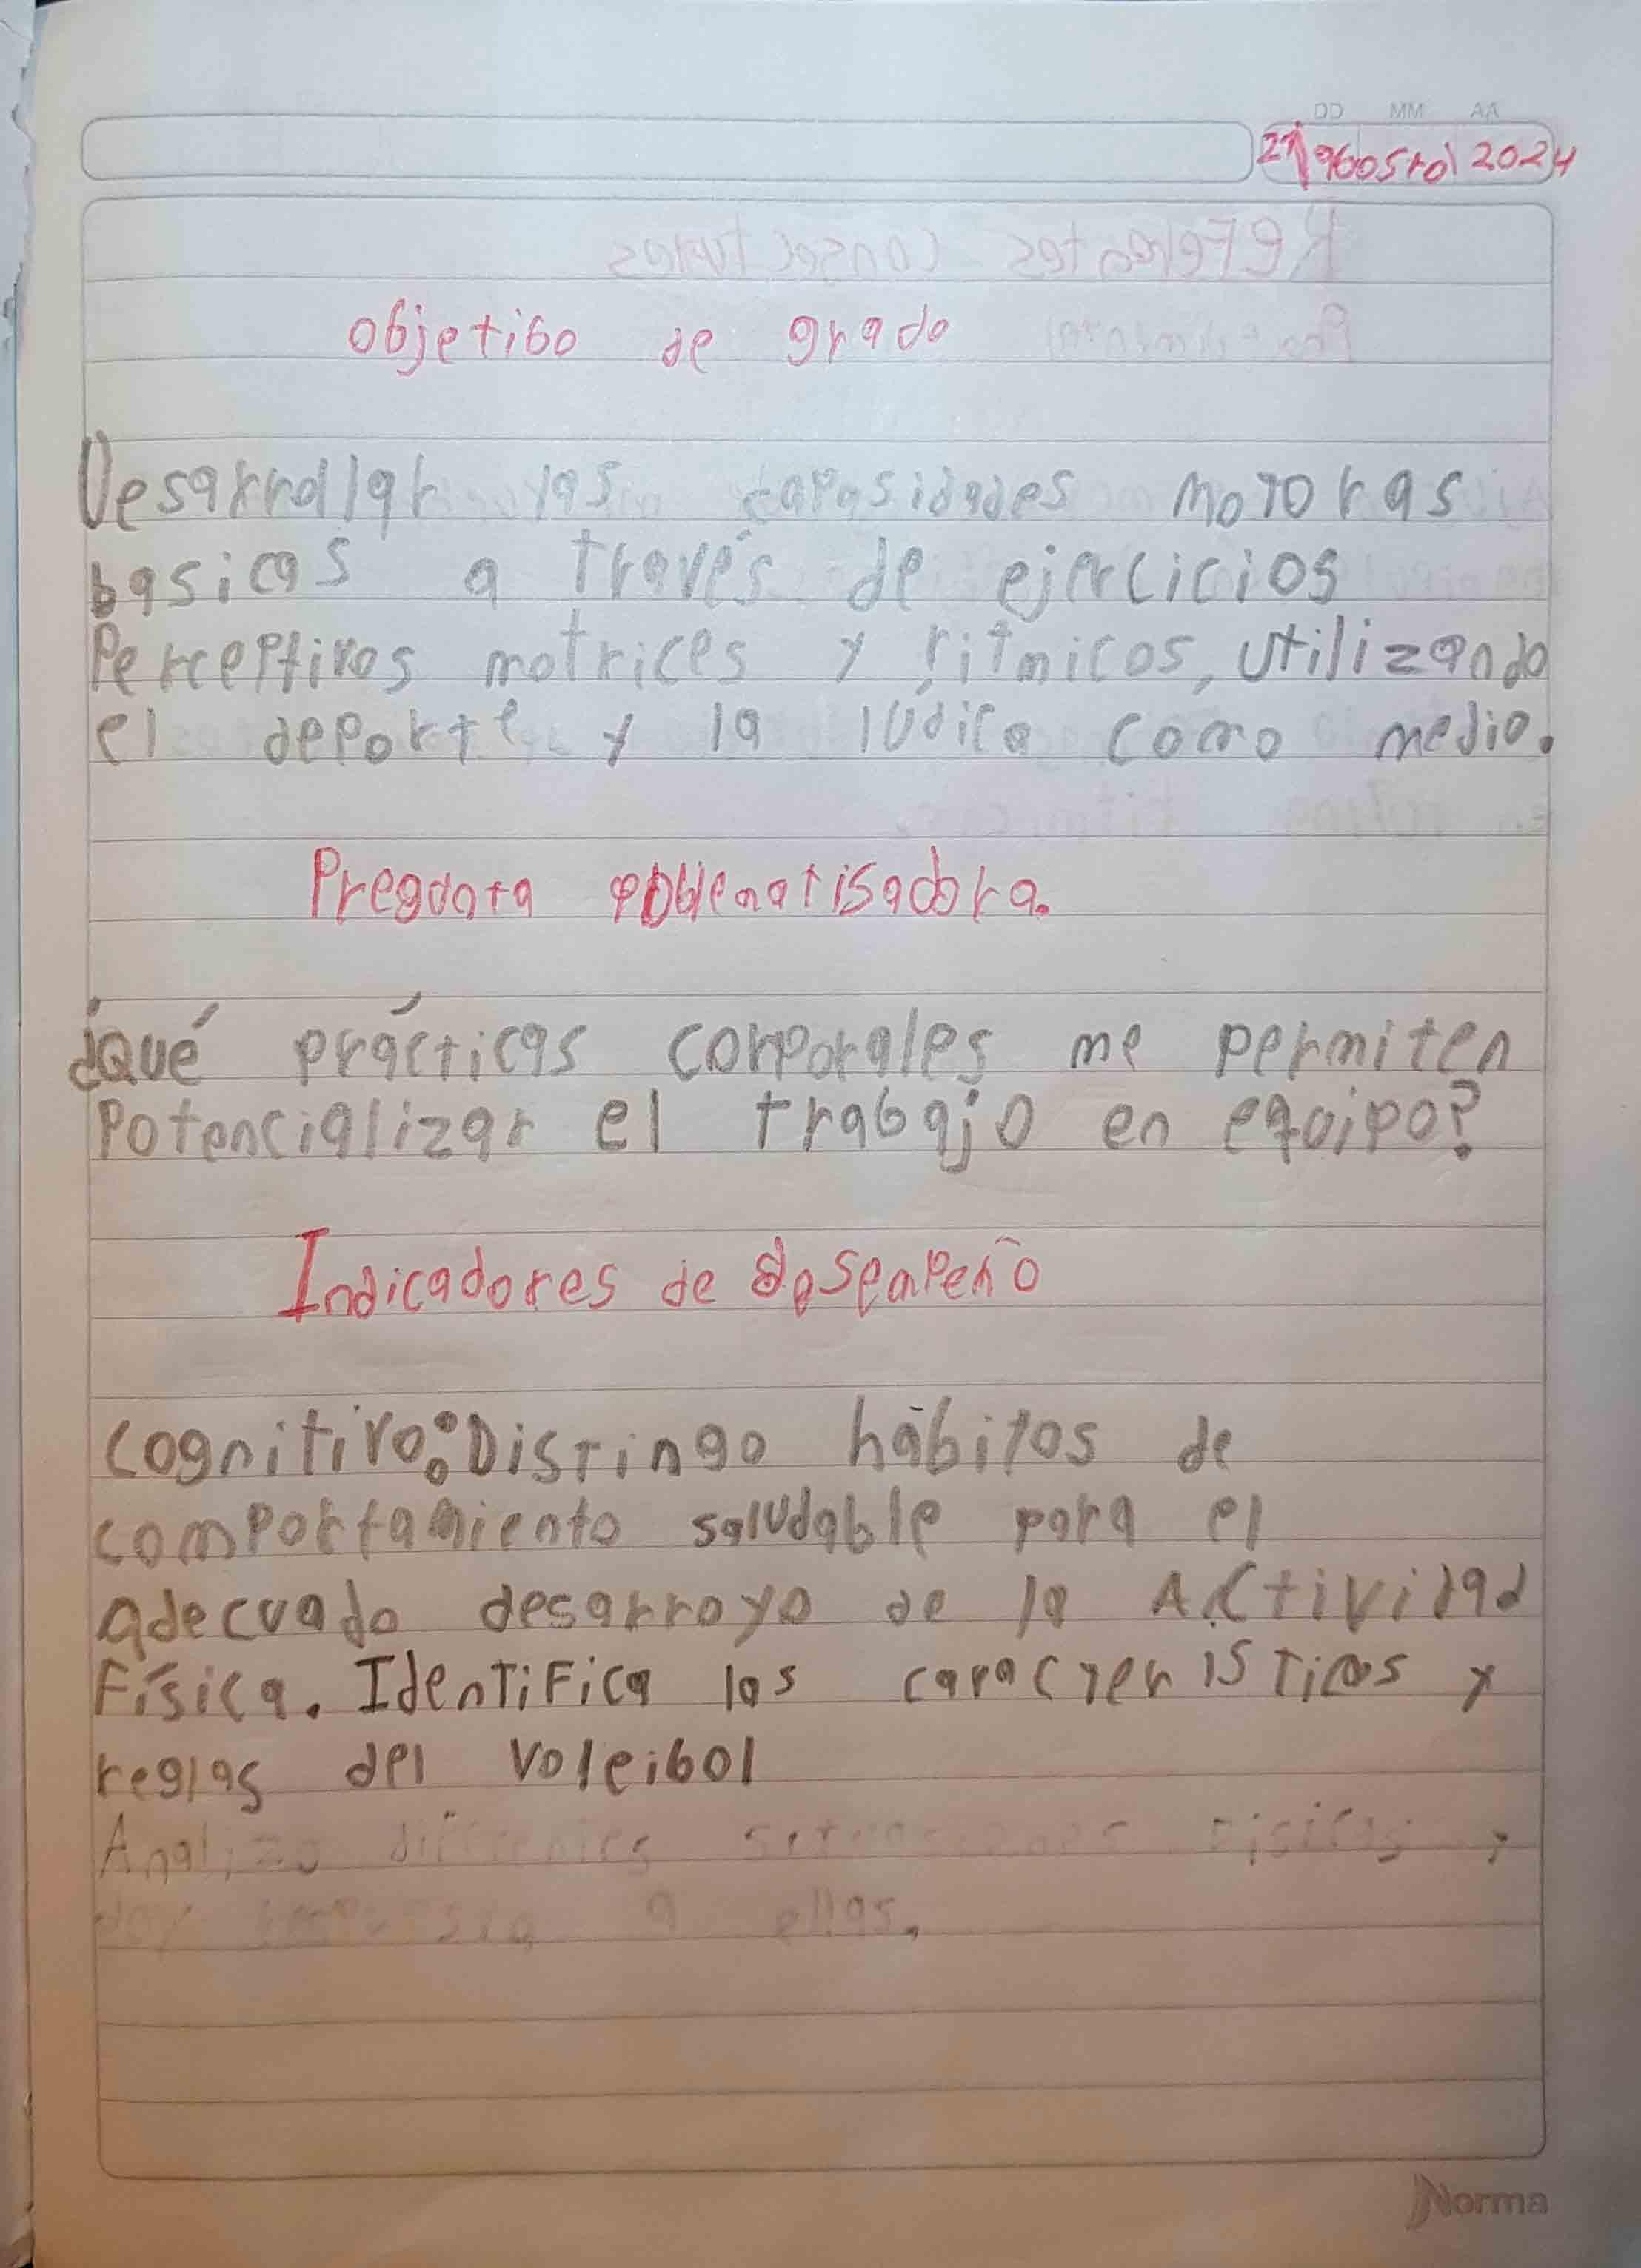 DD MM AA
21 agosto 2024
objetibo de grado
Desarrollar las capasidades motoras
basicas a través de ejercicios
Perceptivos motrices y rítmicos, utilizando
el deporte y la lúdica como medio.
Pregunta problematisadora.
¿Qué prácticas corporales me permiten
Potencializar el trabajo en equipo?
Indicadores de desempeño
cognitivo: Distingo hábitos de
comportamiento saludable para el
adecuado desarroyo de la Actividad
Física. Identifica las características y
reglas del voleibol
Analizo diferentes situaciones físicas y
doy respuesta a ellas.
Norma